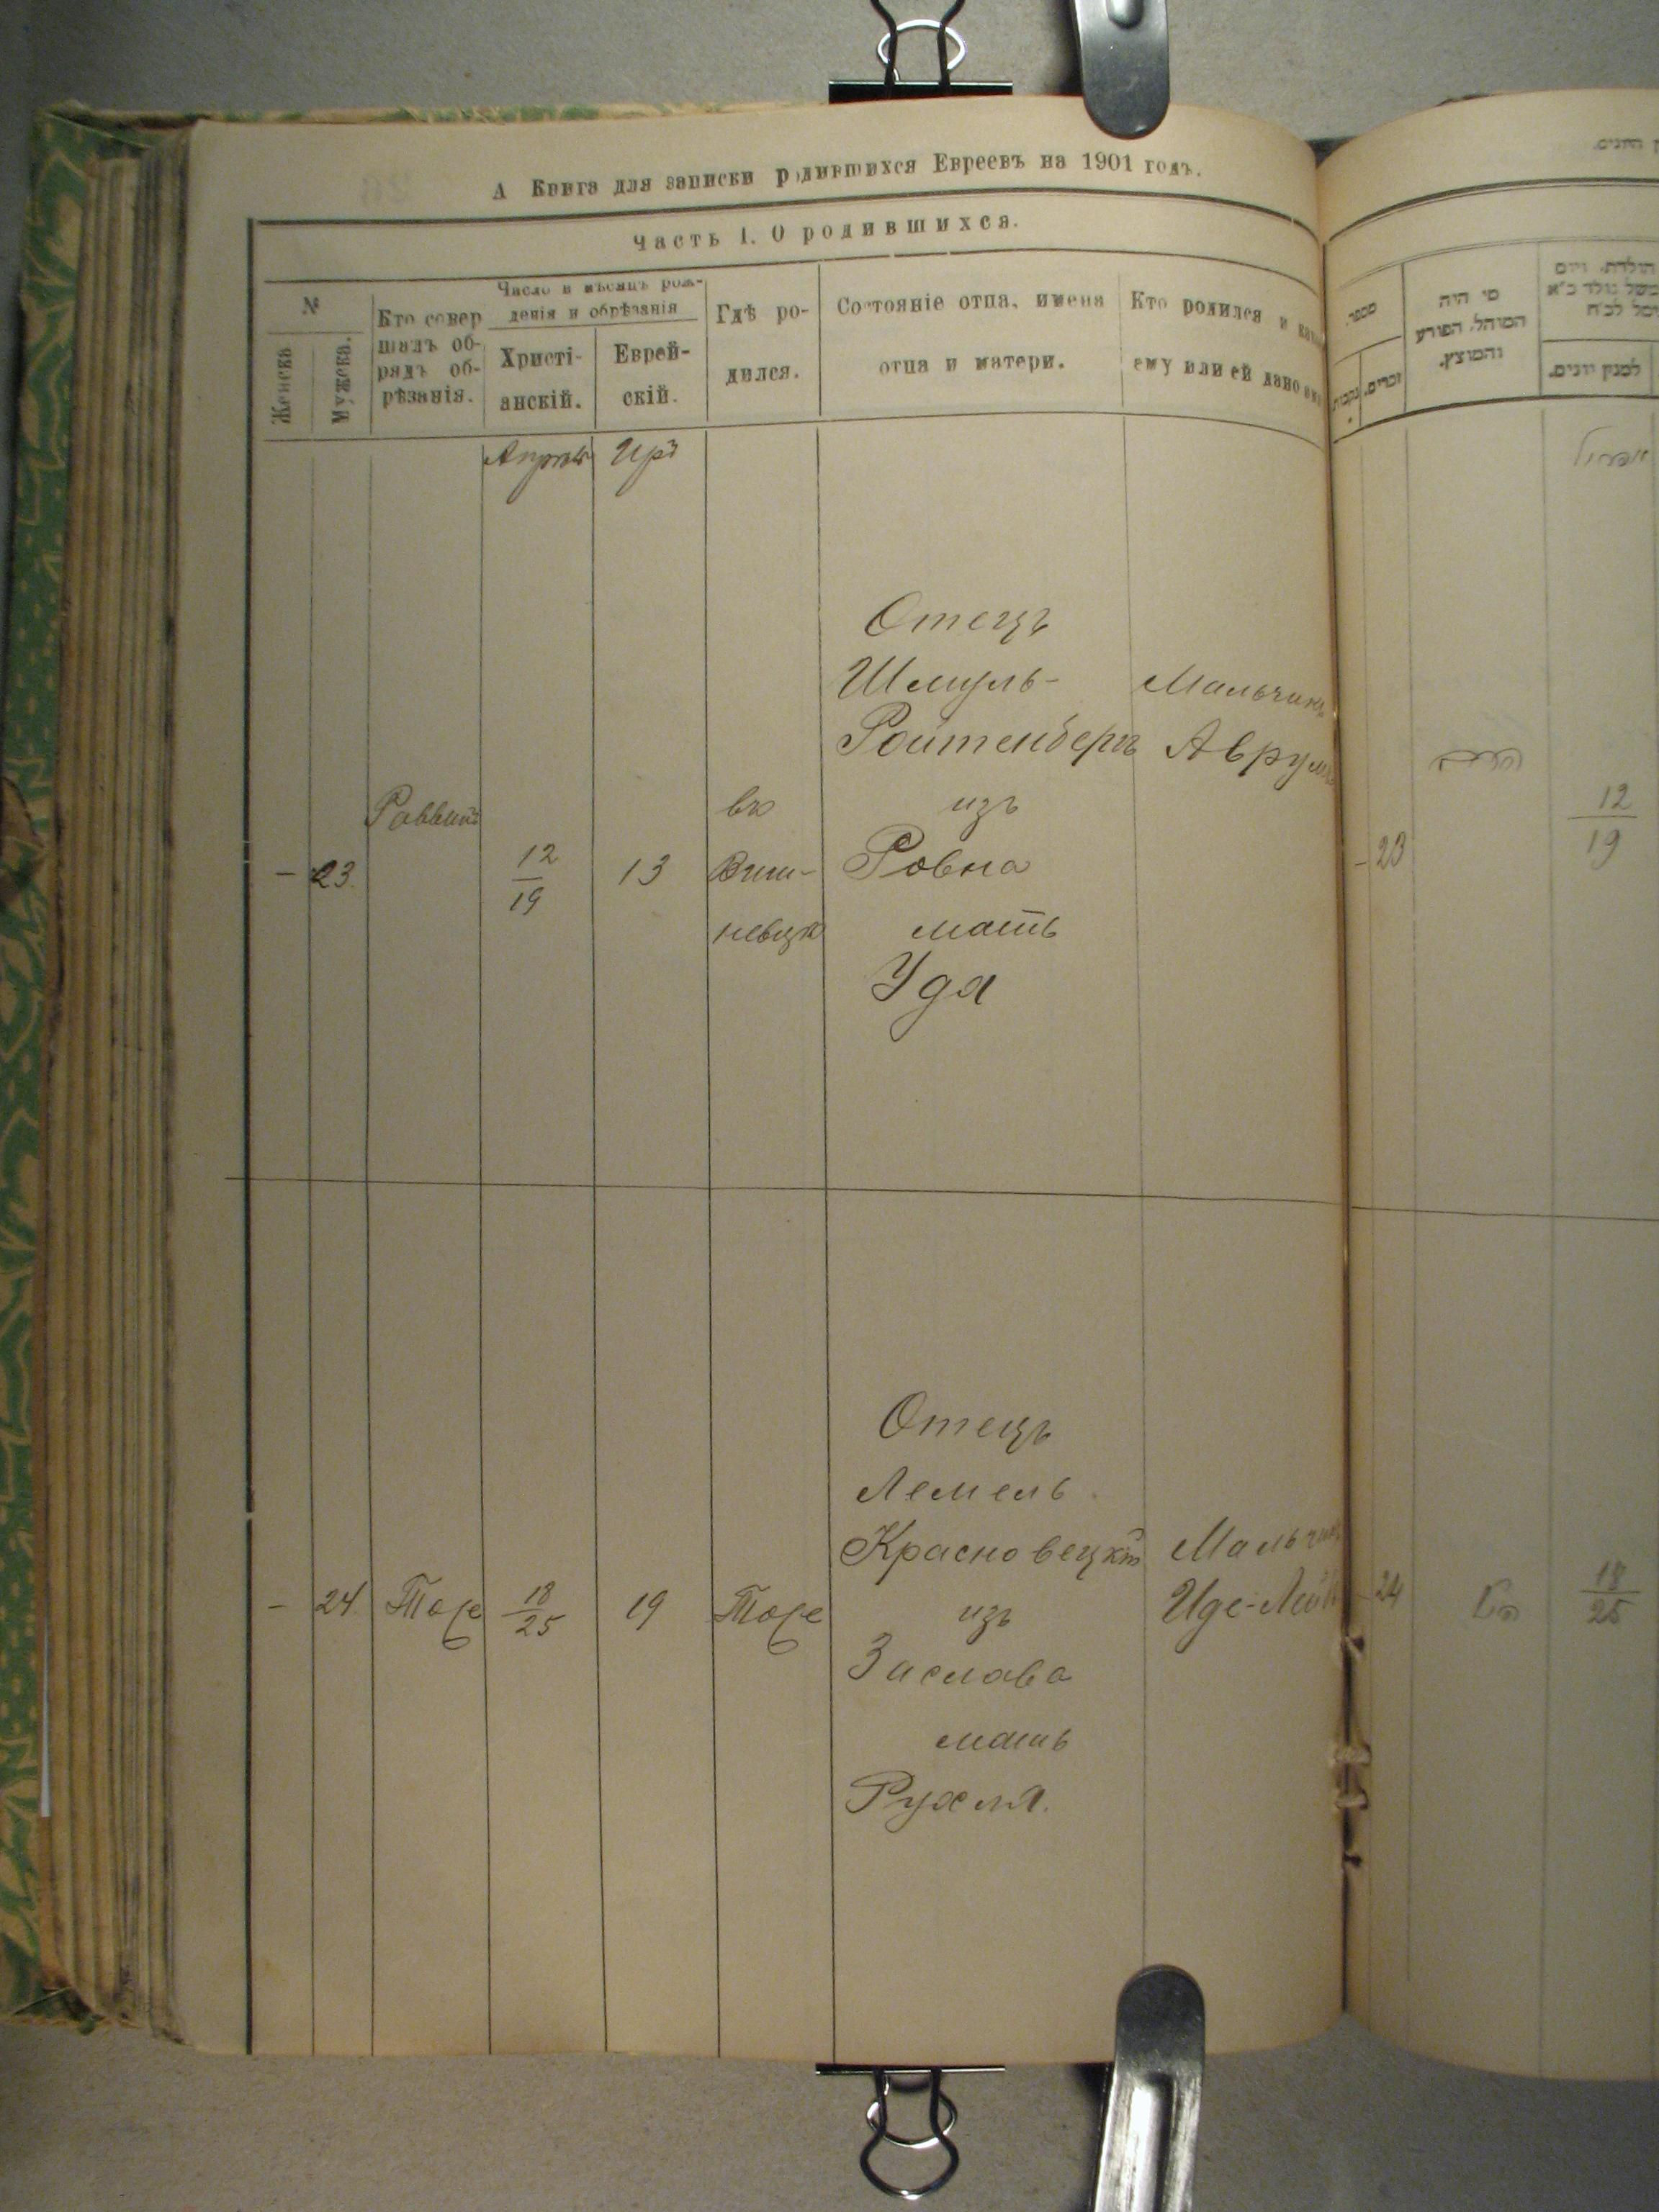 А Книга для записки родившихся Евреевъ на 1901 годъ.
Часть I. О родившихся.
№
Женска
Мужеска.
Кто совер
шалъ об-
рядъ об-
рѣзанія.
Число и мѣсяцъ рож-
денія и обрѣзанія
Христі-
анскій.
Еврей-
скій.
Гдѣ ро-
дился.
Состояніе отца, имена
отца и матери.
Кто родился и
ему или ей дано
Апрѣль
Иръ
- 23.
Раввинъ
12
19
13
въ
Виш-
невцѣ
Отецъ
Шмуль-
Ройтенбергъ
изъ
Ровна
мать
Удя
Мальчикъ
Аврумъ
- 24
Тоже
18
25
19
Тоже
Отецъ
Лемель
Красновецкій
изъ
Заслава
мать
Рухля.
Мальчикъ
Иде-Лейб
מספר.
נקבות
זכרים.
מי היה
המוהל, הפורע
והמוצץ.
הולדת, ויום
למנין יונים.
אפריל
- 23
12
19
24
18
25